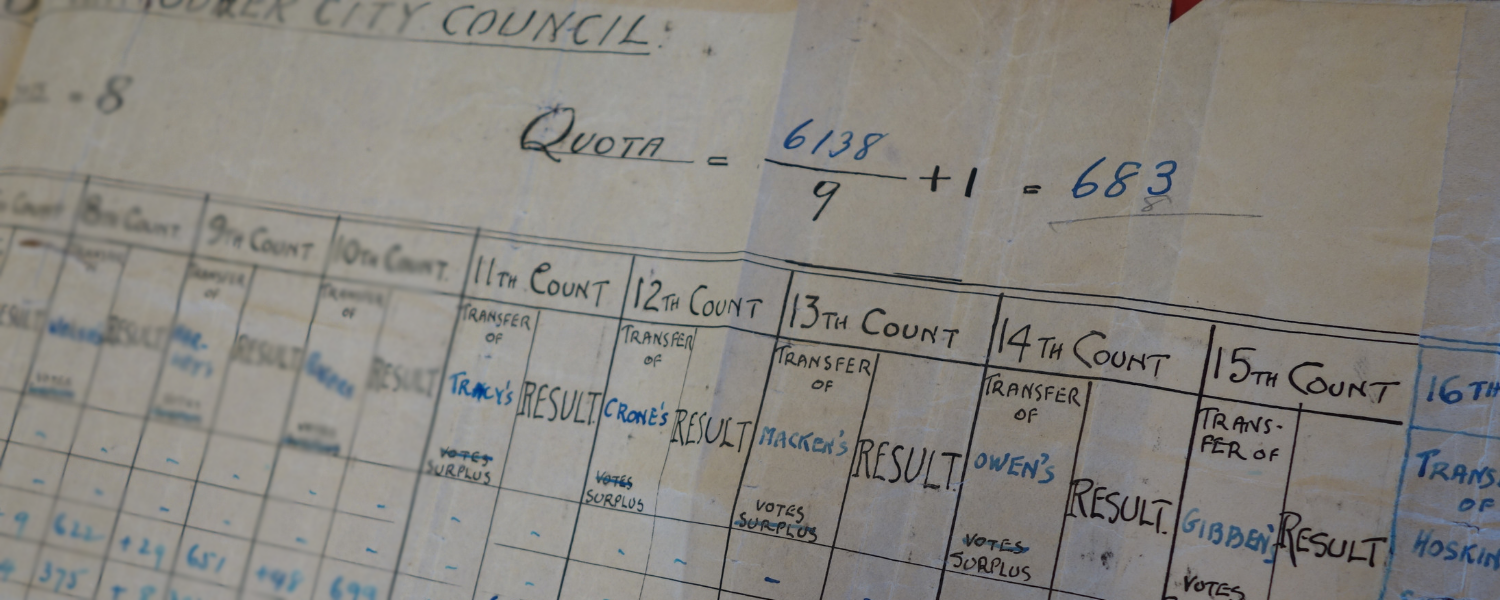 CITY COUNCIL.
= 8
QUOTA = 6138 / 9 + 1 = 683
8TH COUNT 9TH COUNT 10TH COUNT 11TH COUNT 12TH COUNT 13TH COUNT 14TH COUNT 15TH COUNT 16TH
TRANSFER OF RESULT
TRANSFER OF RESULT
TRANSFER OF RESULT
TRANSFER OF TRACY'S VOTES SURPLUS RESULT
TRANSFER OF CRONE'S VOTES SURPLUS RESULT
TRANSFER OF MACKEN'S VOTES SURPLUS RESULT.
TRANSFER OF OWEN'S VOTES SURPLUS RESULT.
TRANS-
FER OF GIBBEN'S VOTES RESULT
TRANS.
OF
HOSKIN
9 622 +29 651 +48 699
375 +8